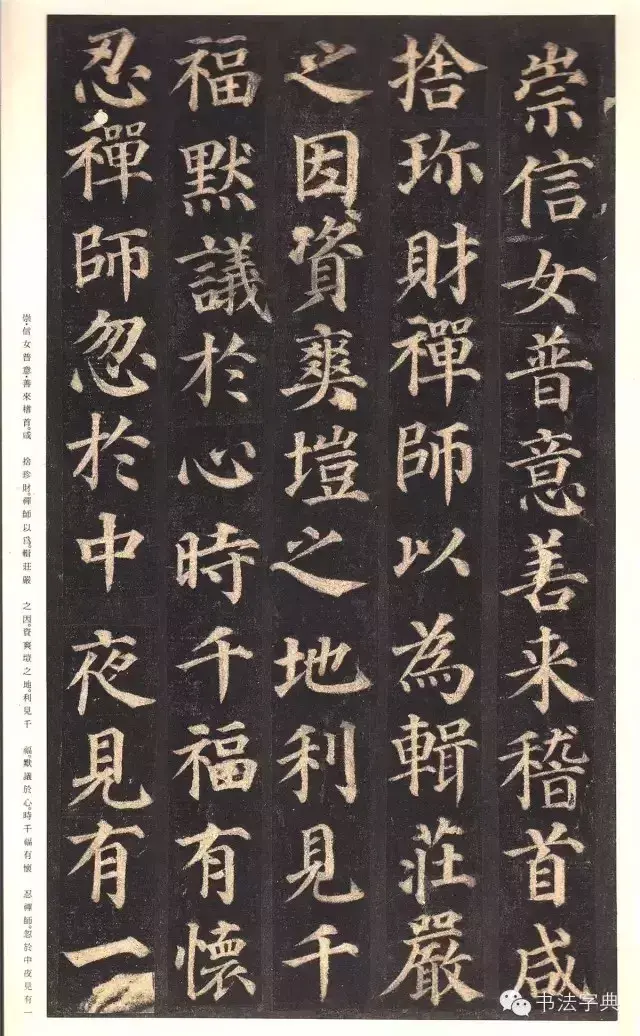 崇信女普意善来稽首咸
捨珎財禪師以為輯莊嚴
之因資爽塏之地利見千
福默議於心時千福有懷
忍禪師忽於中夜見有一
崇信女普意善來稽首咸 捨珍財禪師以爲輯莊嚴 之因資爽塏之地利見千 福默議於心時千福有懷 忍禪師忽於中夜見有一
书法字典